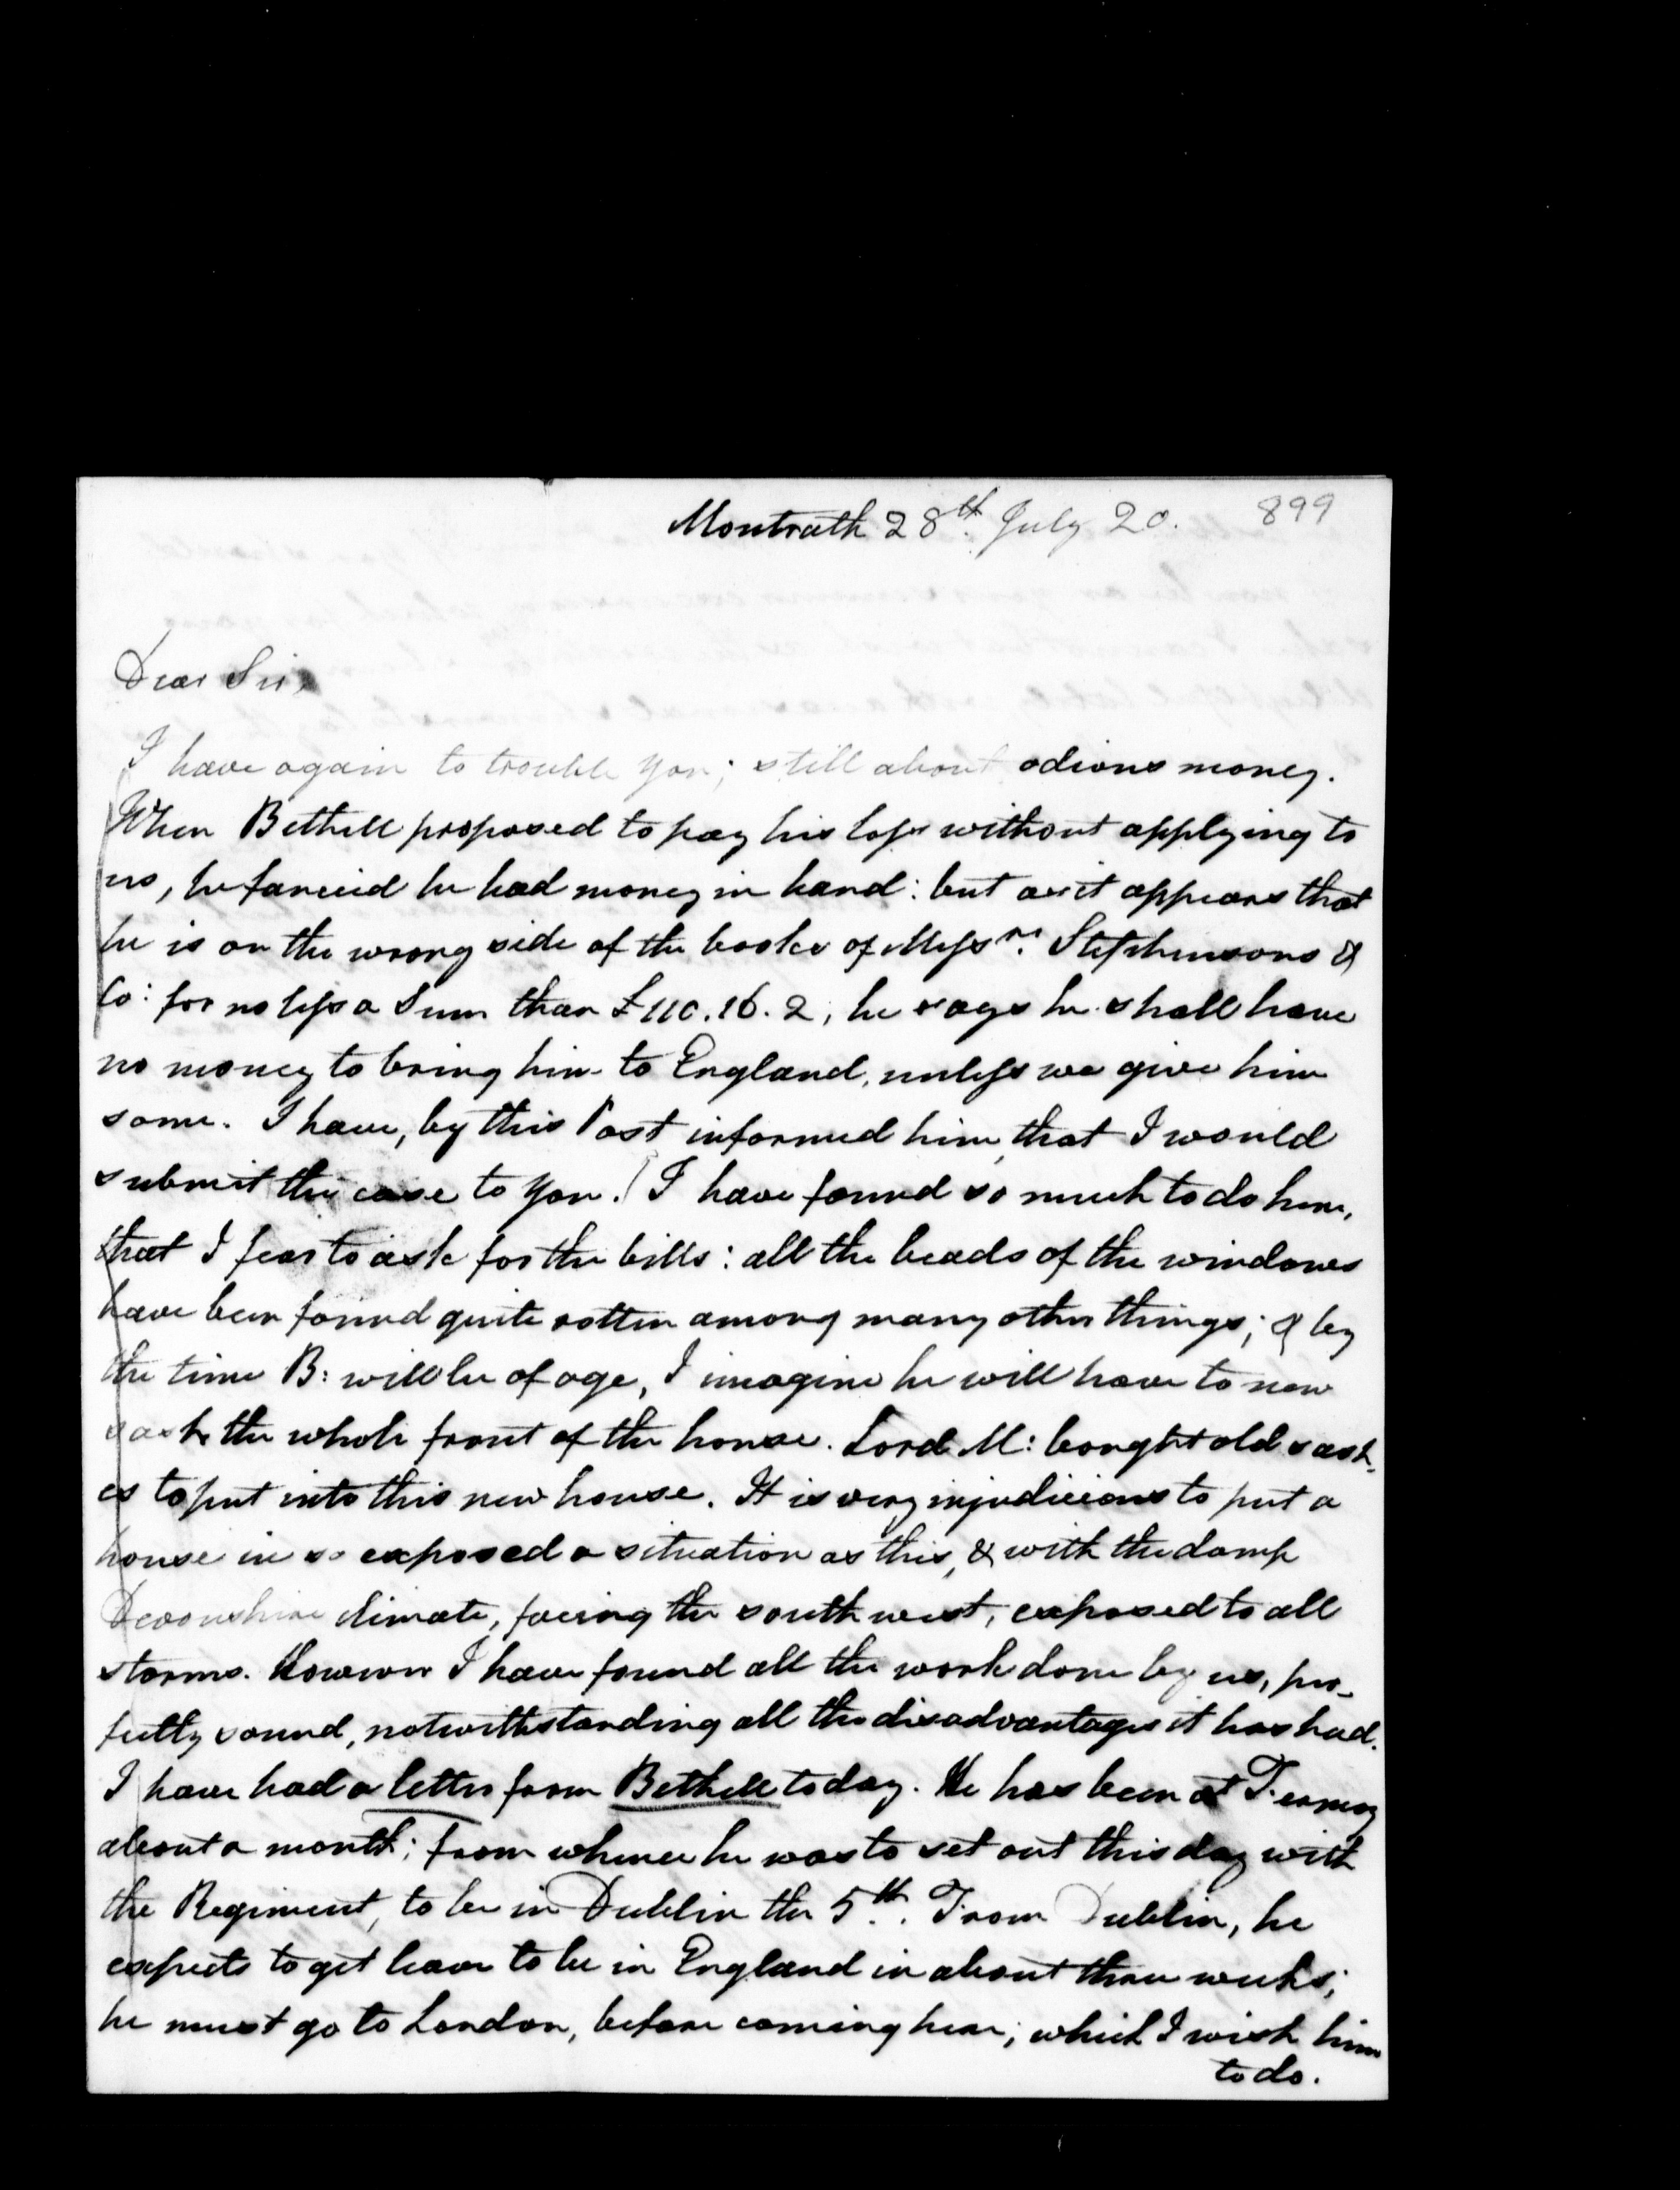 Montrath 28th. July 20. 899
Dear Sir,
I have again to trouble you; still about odious money.
When Bethell proposed to pay his loss without applying to
us, he fancied he had money in hand: but as it appears that
he is on the wrong side of the books of Messrs. Stephensons &
Co: for no less a Sum than £110.16.2, he says he shall have
no money to bring him to England, unless we give him
some. I have, by this Post informed him, that I would
submit the case to you. I have found so much to do here,
that I fear to ask for the bills: all the beads of the windows
have been found quite rotten among many other things; & by
the time B: will be of age, I imagine he will have to new
sash the whole front of the house. Lord M: bought old sash-
es to put into this new house. It is very injudicious to put a
house in so exposed a situation as this, & with the damp
Devonshire climate, facing the south west, exposed to all
storms. However I have found all the work done by us, per-
fectly sound, notwithstanding all the disadvantages it has had.
I have had a letter from Bethell today. He has been at Fermoy
about a month; from whence he was to set out this day with
the Regiment, to be in Dublin the 5th. From Dublin, he
expects to get leave to be in England in about three weeks;
he must go to London, before coming here; which I wish him
to do.